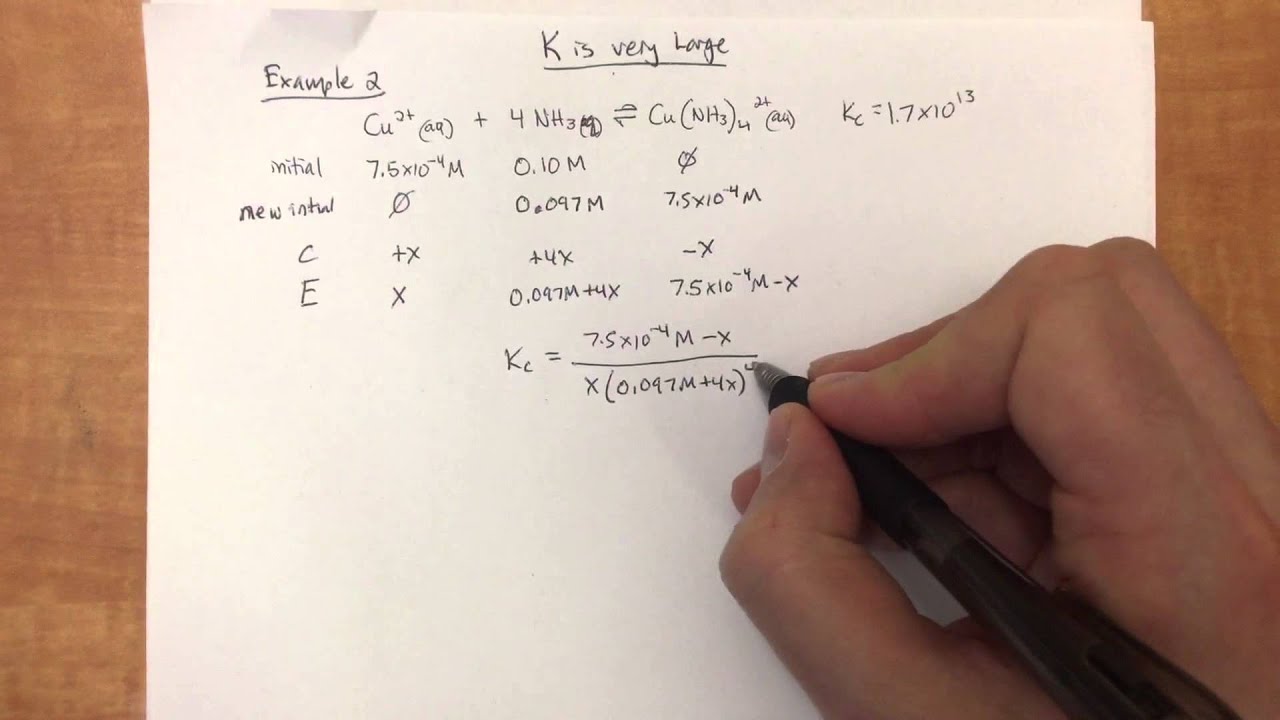 K is very Large
Example 2
Cu²⁺(aq) + 4 NH₃(aq) ⇌ Cu(NH₃)₄²⁺(aq) Kc = 1.7×10¹³
initial 7.5×10⁻⁴M 0.10M ∅
new intial ∅ 0.097M 7.5×10⁻⁴M
C +x +4x -x
E x 0.097M+4x 7.5×10⁻⁴M-x
Kc = 7.5×10⁻⁴M-x
x(0.097M+4x)⁴